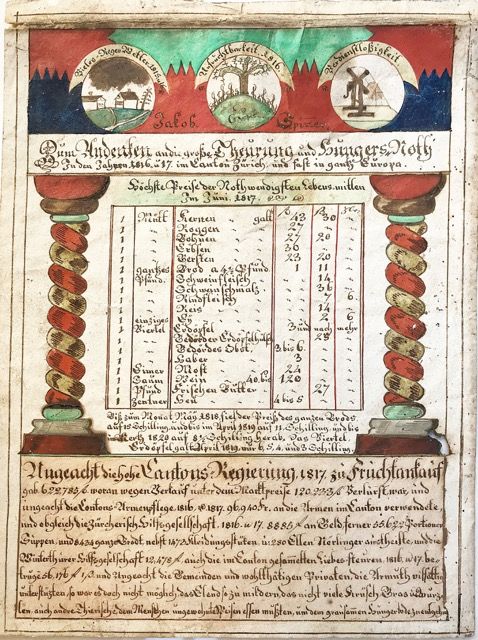 Vieles Regen-Wetter. 1815. 16.
Unfruchtbarkeit. 1816.
Verdienstloßigkeit
Jakob. Spizer.
Zum Andenken an die große Theürung und Hungers-Noth
In den Jahren, 1816. u. 17. im Canton Zürich, und fast in gantz Europa.
Höchste Preise der Nothwendigsten Lebens-mitlen
Im Juni. 1817.
1 Mütt Kernen galt 43 30
1 " Roggen " 27
1 " Bohnen " 27 20
1 " Erbsen " 36
1 " Gersten " 23 20
1 gantzes Brod a 4½ Pfund. 1 11
1 Pfund. Schweinfleisch 14
1 " Schweinschmalz 36
1 " Rindfleisch 7 6
1 " Reis 14
1 einziges Ey 2 6
1 Viertel Erdöpfel 3 und nach mehr
1 " Gedörter Erdöpfelhülsen 28
1 " Gedörtes Obst, 3 bis 6.
" Haber 3
1 Eimer Most 24
1 Saum Wein 40. bis 120
1 Pfund Frischen Butter 27
1 Zentner Heu 4 bis 5
Biß zum Monat May, 1818, fiel der Preiß des ganzen Brods
auf 15 Schilling, und bis im April 1819 auf 11. Schilling, und bis
im Mertz 1820 auf 8½ Schilling herab. Das Viertel.
Erdöpfel galt April 1819. nur 6, 5, 4, und 3. Schilling.
Ungeacht die hohe Cantons Regierung, 1817. zu Fruchtankauf
gab, woran wegen Verkauf unter dem Marktpreise Verlurst war, und
ungeacht die Cantons-Armenpflege. 1816. & 1817. an die Armen im Canton verwendete,
und obgleich die Zürcherisch Hilfsgesellschaft. 1816. u 17. 8885 an Geld ferner 55622 Portionen
Suppen, und 8434 ganze Brodt, nebst 1472 Kleidungsstüken, u: 280 Ellen Nörlinger austheilte, und die
Winterthürer Hilfsgesellschaft 12,478 auch die im Canton gesamelten Liebes-steüren. 1816. u 17. be-
trüge 56,176 und Ungeacht die Gemeinden und wohlthätigen Privaten, die Armuth vilfältig
unterstützten, so war es doch nicht möglich das Elend so zu mildern, das nicht viele Krüsch Gras u Wurz-
len, auch andre Thierische, dem Menschen ungewohnte Speisen essen müßten, um dem grausamen Hungertode zu entgehen.